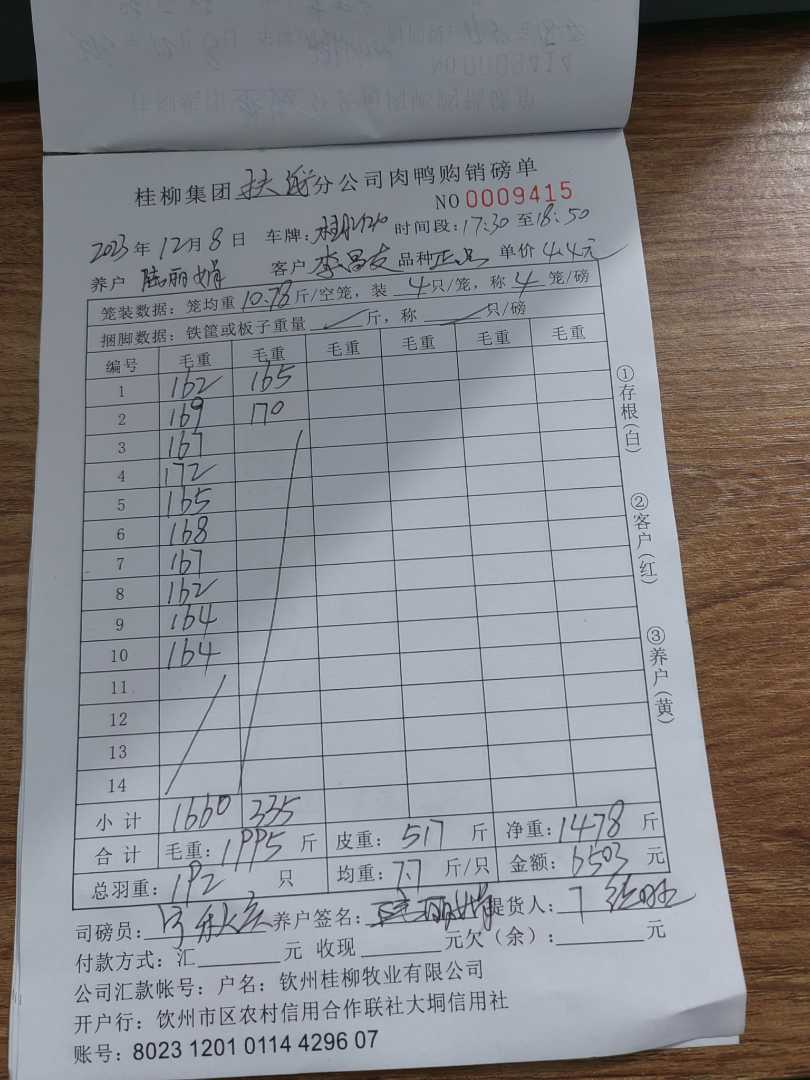 桂柳集团 扶绥 分公司肉鸭购销磅单
NO 0009415
2023年12月8日 车牌: 时间段:17:30至18:50
养户 陆丽娟 客户 李昌友 品种正品 单价 4.4元
笼装数据:笼均重10.78斤/空笼,装 4只/笼,称 4 笼/磅
捆脚数据:铁筐或板子重量 斤,称 只/磅
编号 毛重 毛重 毛重 毛重 毛重 毛重
1 162 165
2 169 170
3 167
4 172
5 165
6 168
7 167
8 162
9 164
10 164
11
12
13
14
小计 1660 335
合计 毛重:1995 斤 皮重:517 斤 净重:1478 斤
总羽重:192 只 均重:7.7 斤/只 金额:6503 元
司磅员: 养户签名: 丽娟 提货人:
付款方式:汇 元 收现 元欠(余): 元
公司汇款帐号:户名:钦州桂柳牧业有限公司
开户行:钦州市区农村信用合作联社大垌信用社
账号:8023 1201 0114 4296 07
①存根(白)
②客户(红)
③养户(黄)